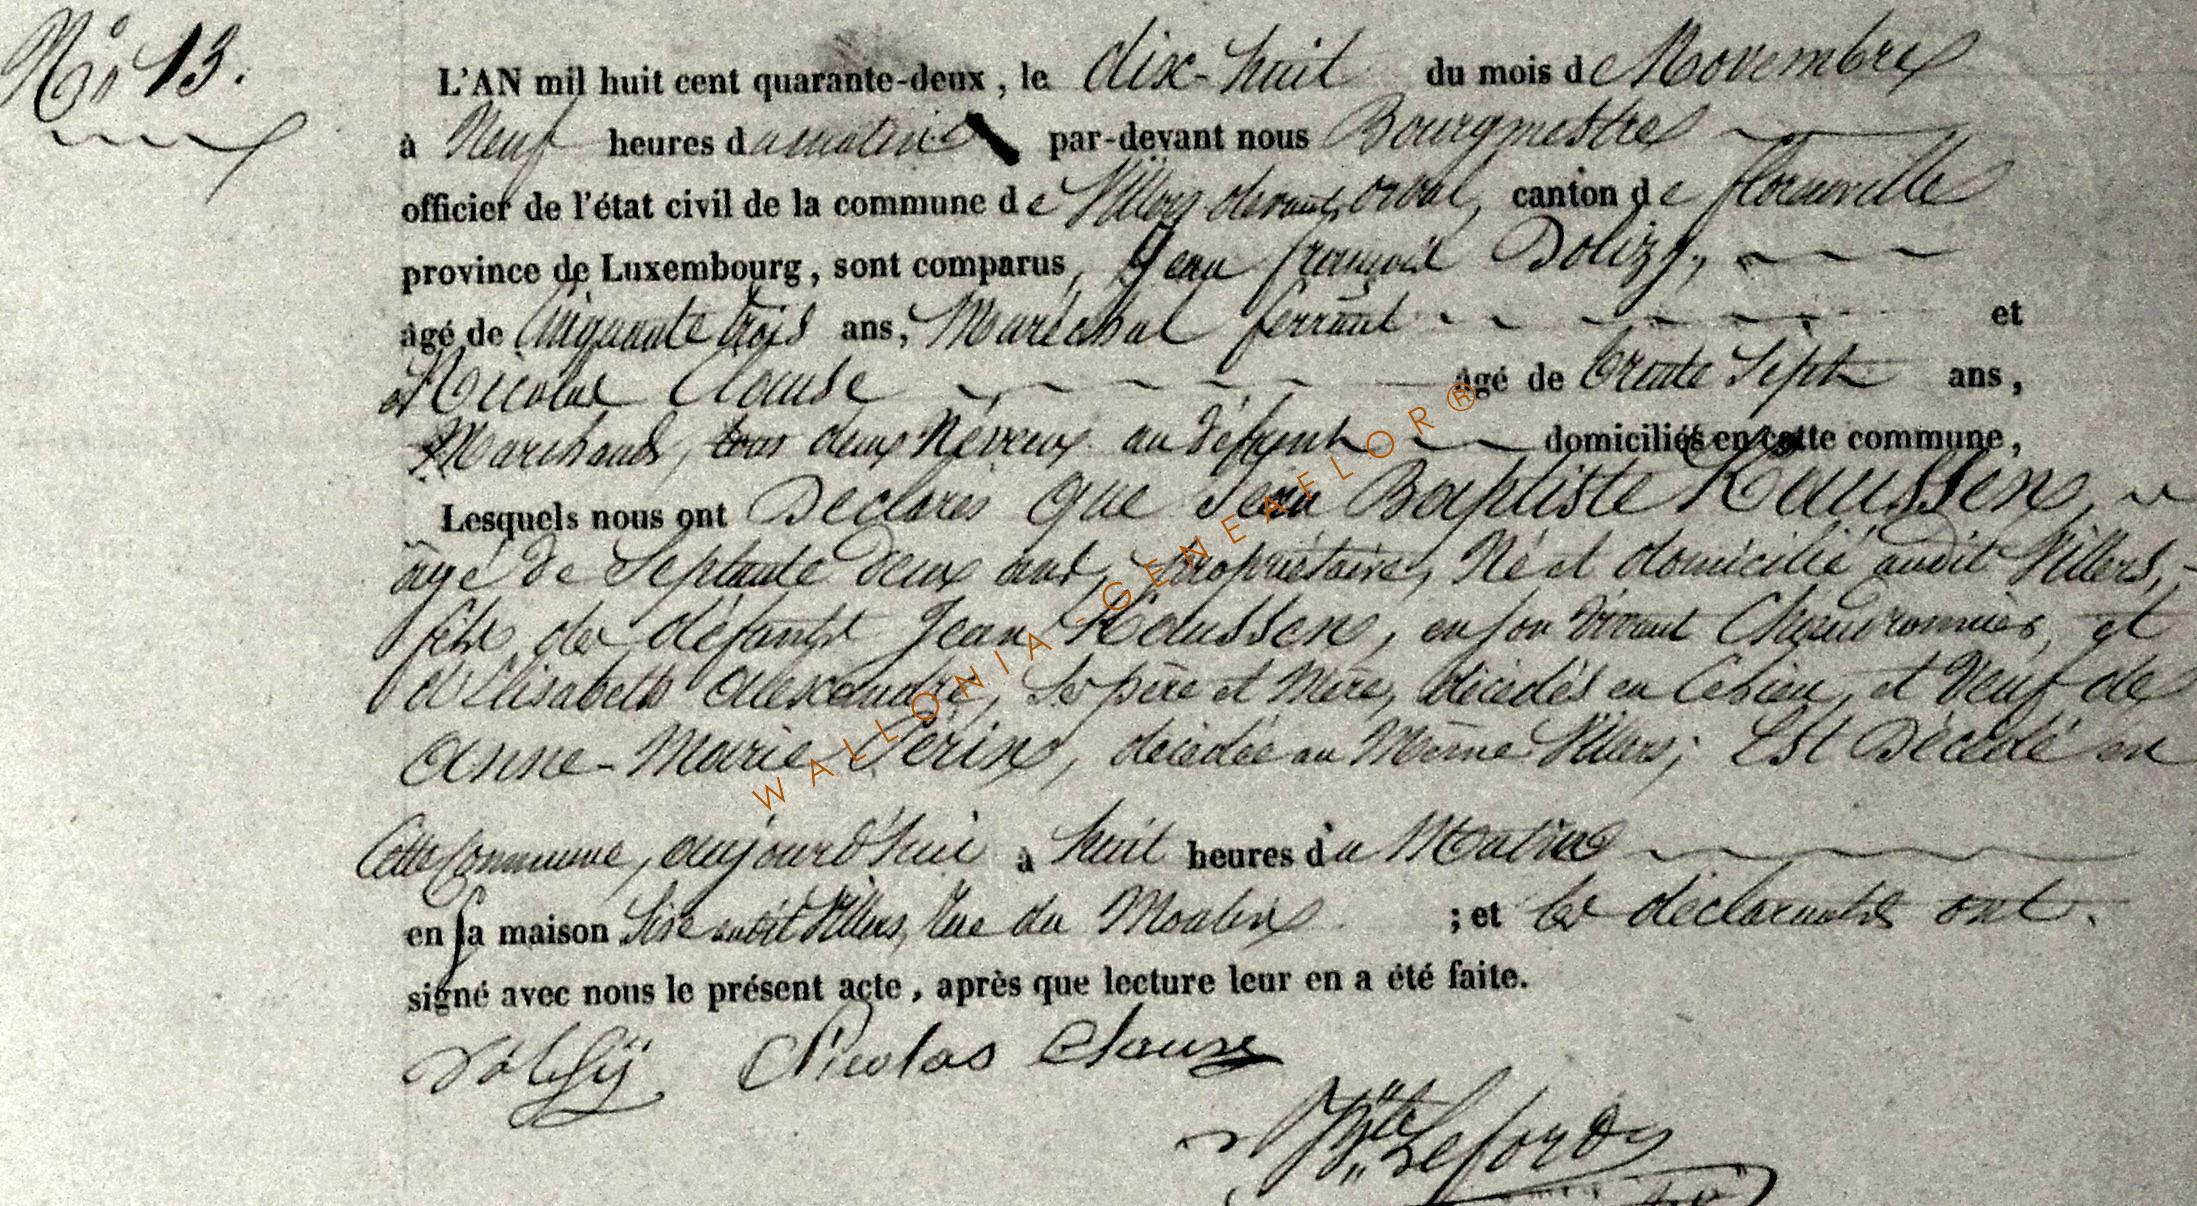 N° 13.
L'AN mil huit cent quarante-deux, le dix-huit du mois de Novembre
à Neuf heures du matin par-devant nous Bourgmestre
officier de l'état civil de la commune de Villers devant orval, canton de florenville
province de Luxembourg, sont comparus, Jean françois Dolizy,
âgé de Cinquante trois ans, Maréchal ferrant et
Nicolas Clause âgé de trente Sept ans,
Marchand, tous deux Neveux au défunt domiciliés en cette commune,
Lesquels nous ont Déclarés que Jean Baptiste Haussen,
âgé de Septante deux ans, propriétaire, Né et domicilié audit Villers,
fils des défunts Jean Haussen, en son vivant Chaudronnier, et
d'Elisabeth Alexandre, Ses père et Mère, décédés en Ce lieu, et Veuf de
Anne-Marie Périn, décédée au Même Villers; Est Décédé en
Cette Commune, aujourd'hui à huit heures du Matin
en sa maison Sise audit Villers, Rue du Moulin ; et les déclarants ont
signé avec nous le présent acte, après que lecture leur en a été faite.
Dolisÿ Nicolas Clause
Lefort
WALLONIA-GENEAFLOR®